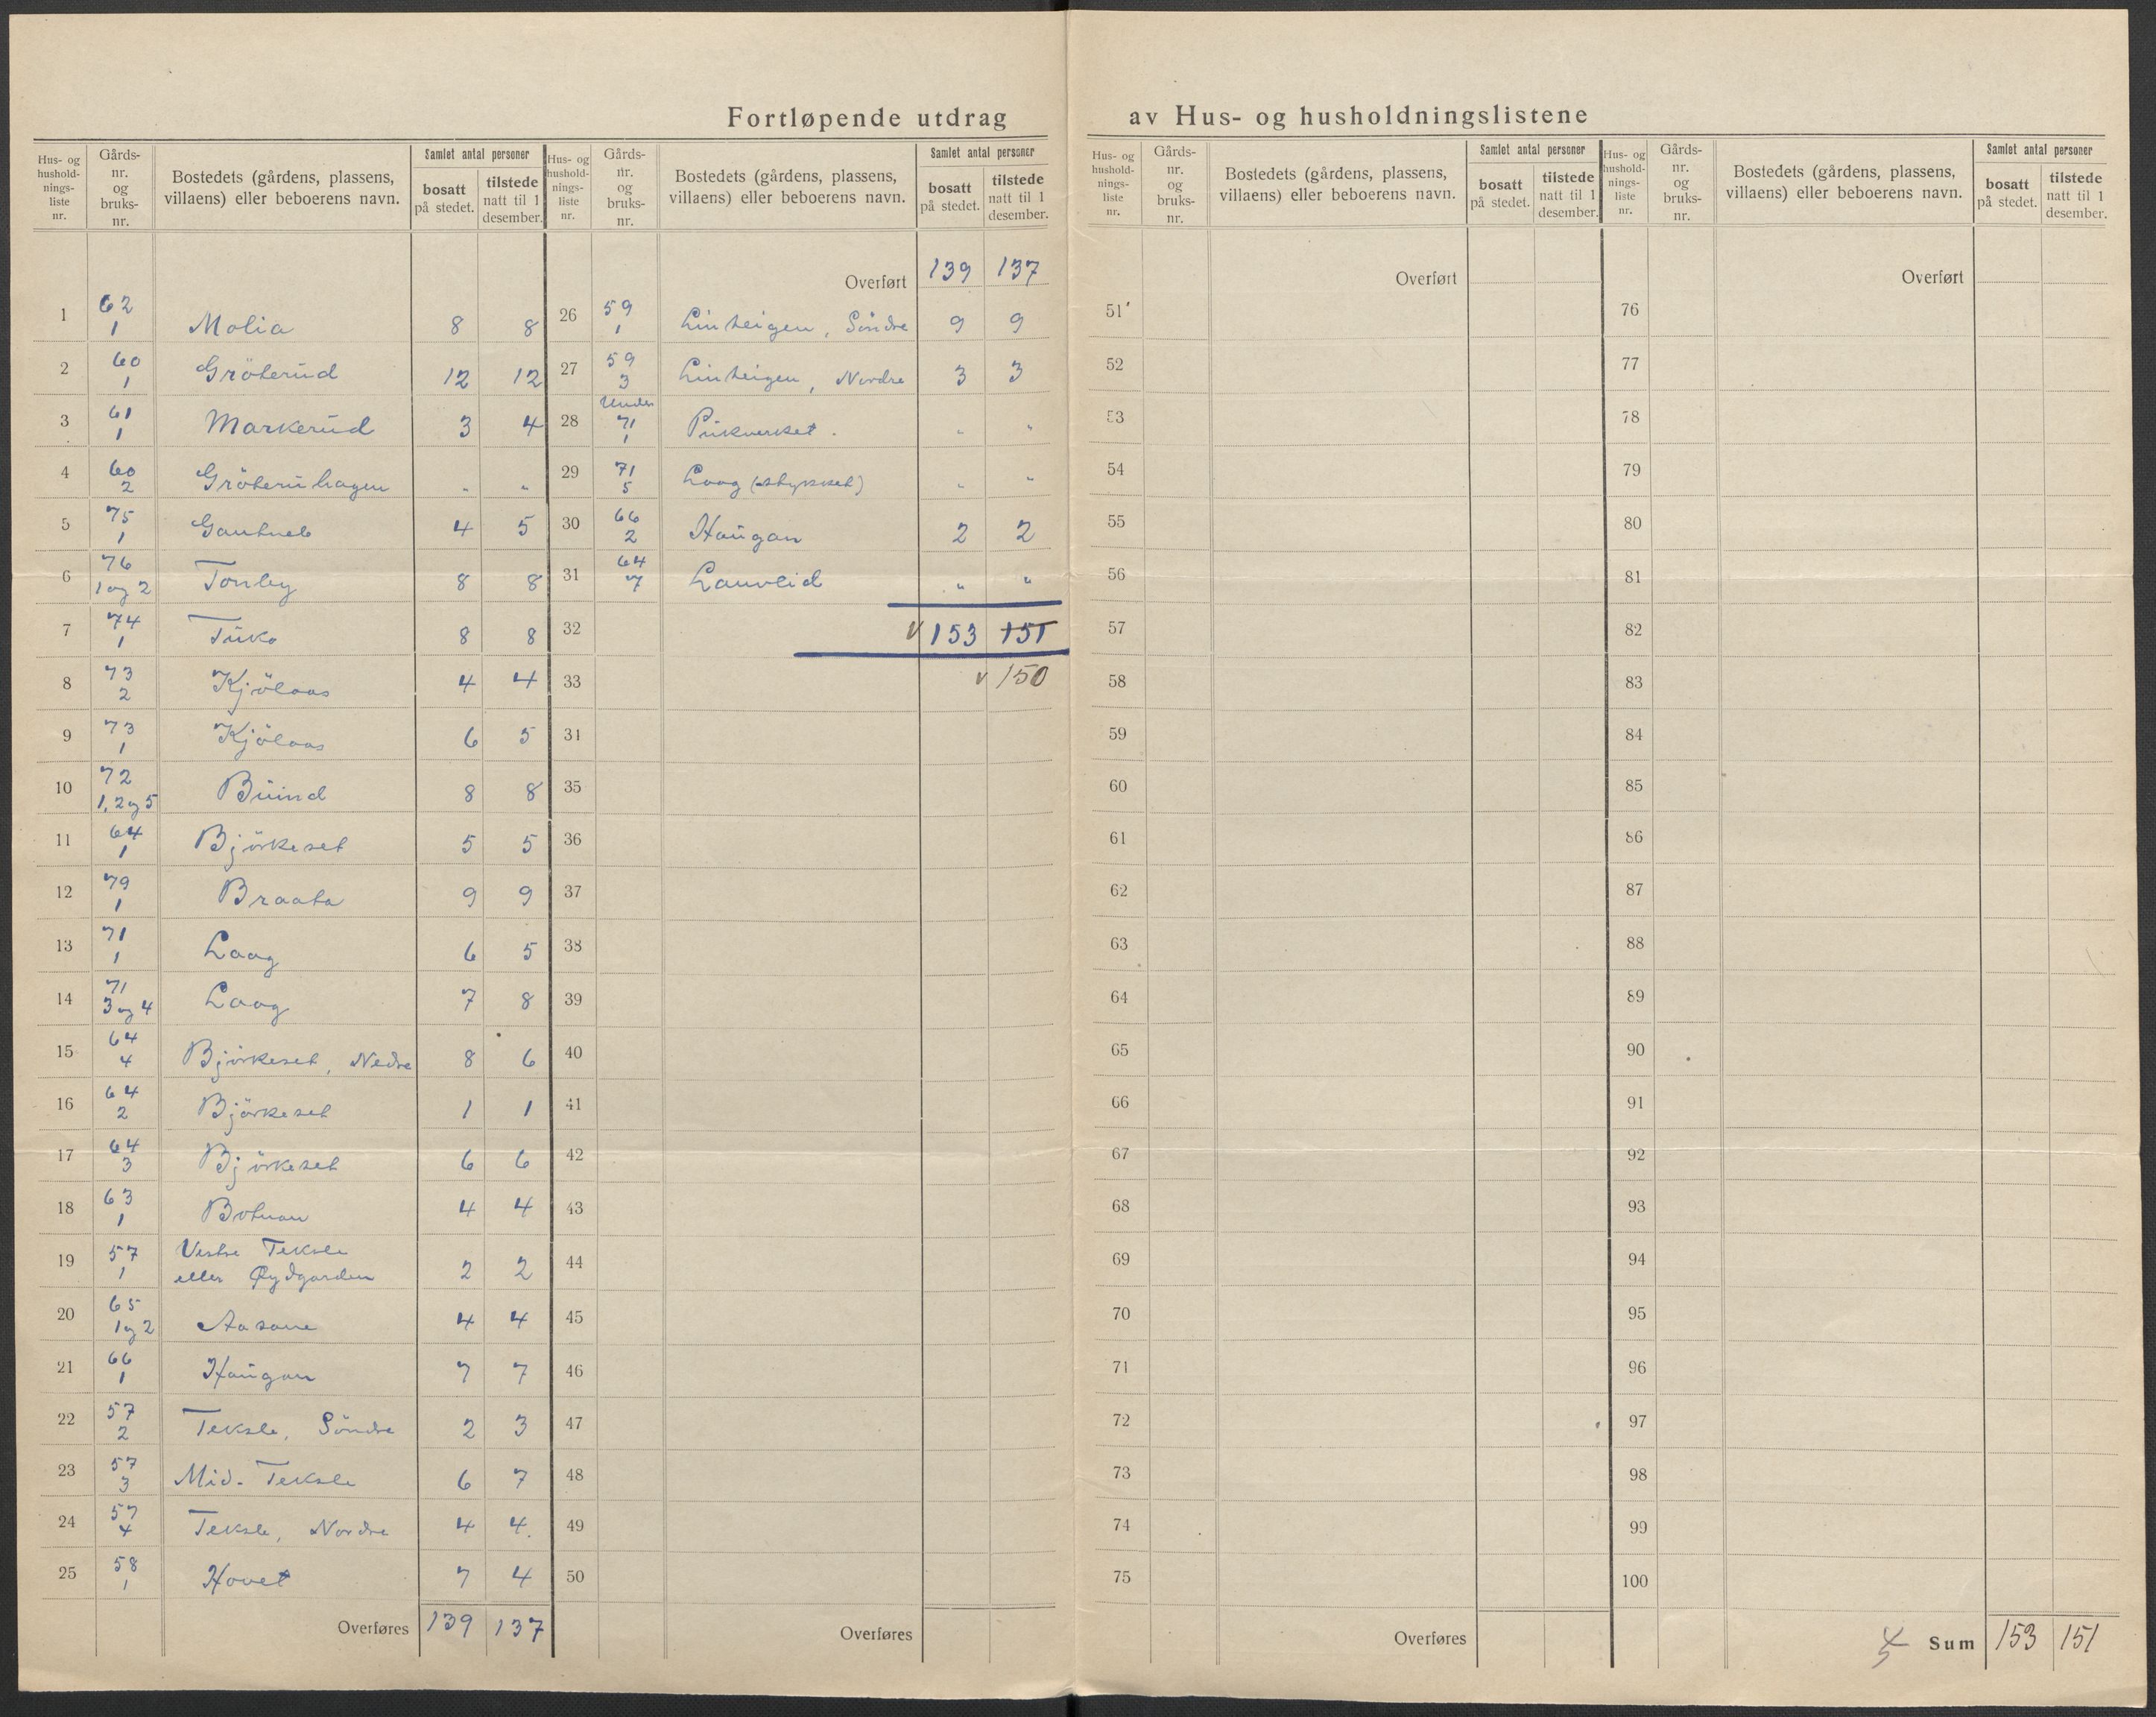 Fortløpende utdrag av Hus- og husholdningslistene
Hus- og hushold-nings-liste nr. | Gårds-nr. og bruks-nr. | Bostedets (gårdens, plassens, villaens) eller beboerens navn. | Samlet antal personer | bosatt på stedet. | tilstede natt til 1 desember.
1 62 1 Molia 8 8
2 60 1 Gröterud 12 12
3 61 1 Markerud 3 4
4 60 2 Gröteruhagen " "
5 75 1 Gautneb 4 5
6 76 1 og 2 Tonby 8 8
7 74 1 Tuko 8 8
8 73 2 Kjölaas 4 4
9 73 1 Kjölaas 6 5
10 72 1, 2 og 5 Buind 8 8
11 64 1 Björkeset 5 5
12 79 1 Braata 9 9
13 71 1 Laag 6 5
14 71 3 og 4 Laag 7 8
15 64 4 Björkeset, Nedre 8 6
16 64 2 Björkeset 1 1
17 64 3 Björkeset 6 6
18 63 1 Botnan 4 4
19 57 1 Vestre Teksle
eller Øydgarden 2 2
20 65 1 og 2 Aasane 4 4
21 66 1 Haugan 7 7
22 57 2 Teksle, Söndre 2 3
23 57 3 Mid-Teksle 6 7
24 57 4 Teksle, Nordre 4 4.
25 58 1 Hovet 7 4
Overføres 139 137
Hus- og hushold-nings-liste nr. | Gårds-nr. og bruks-nr. | Bostedets (gårdens, plassens, villaens) eller beboerens navn. | Samlet antal personer | bosatt på stedet. | tilstede natt til 1 desember.
Overført 139 137
26 59 1 Linteigen, Söndre 9 9
27 59 3 Linteigen, Nordre 3 3
28 Under 71 1 Pukverket. " "
29 71 5 Laag (stykket) " "
30 66 2 Haugan 2 2
31 64 7 Lauvlid " "
32 v 153 151
33 v 150
31
35
36
37
38
39
40
41
42
43
44
45
46
47
48
49
50
Overføres
Hus- og hushold-nings-liste nr. | Gårds-nr. og bruks-nr. | Bostedets (gårdens, plassens, villaens) eller beboerens navn. | Samlet antal personer | bosatt på stedet. | tilstede natt til 1 desember.
Overført
51
52
53
54
55
56
57
58
59
60
61
62
63
64
65
66
67
68
69
70
71
72
73
74
75
Overføres
Hus- og hushold-nings-liste nr. | Gårds-nr. og bruks-nr. | Bostedets (gårdens, plassens, villaens) eller beboerens navn. | Samlet antal personer | bosatt på stedet. | tilstede natt til 1 desember.
Overført
76
77
78
79
80
81
82
83
84
85
86
87
88
89
90
91
92
93
94
95
96
97
98
99
100
Sum 153 151